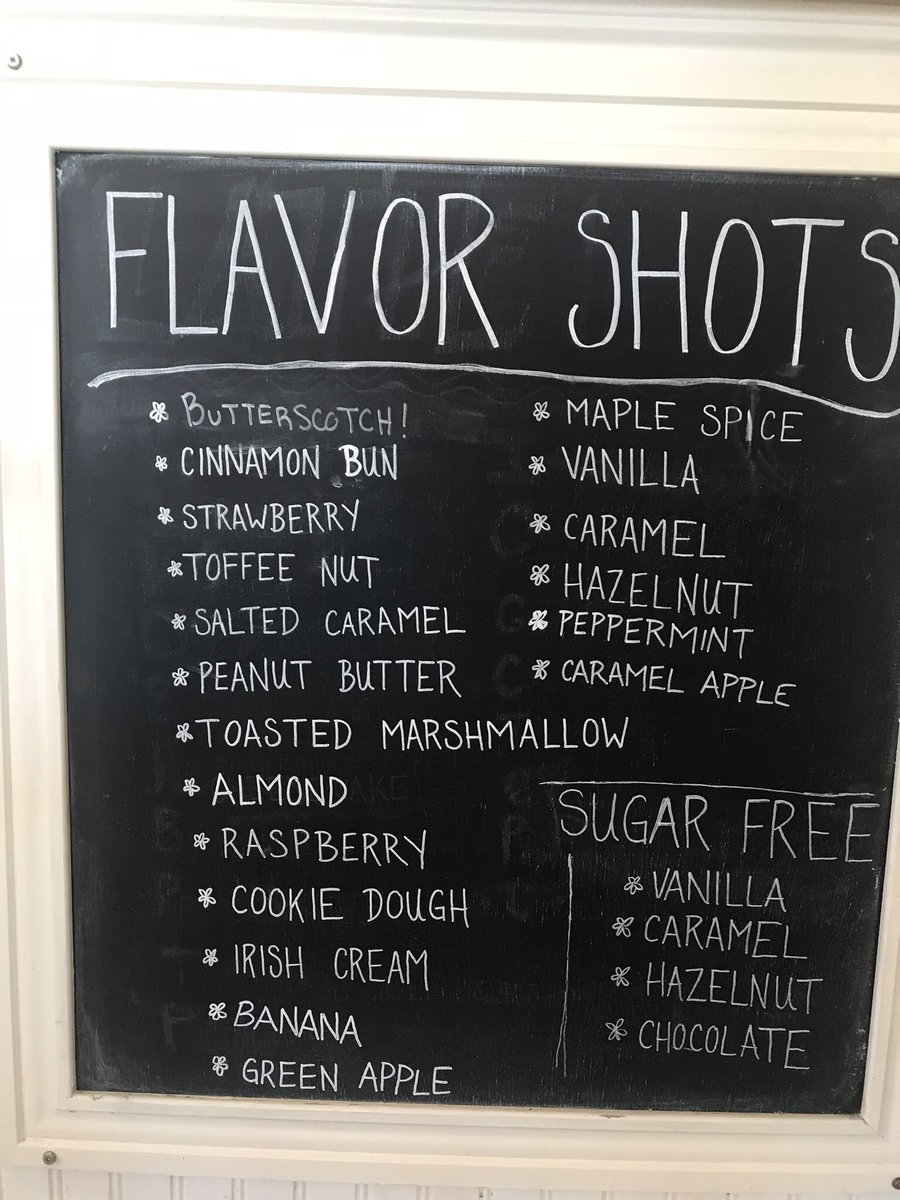 FLAVOR SHOTS
* BUTTERSCOTCH!
* CINNAMON BUN
* STRAWBERRY
* TOFFEE NUT
* SALTED CARAMEL
* PEANUT BUTTER
* TOASTED MARSHMALLOW
* ALMOND
* RASPBERRY
* COOKIE DOUGH
* IRISH CREAM
* BANANA
* GREEN APPLE
* MAPLE SPICE
* VANILLA
* CARAMEL
* HAZELNUT
* PEPPERMINT
* CARAMEL APPLE
SUGAR FREE
* VANILLA
* CARAMEL
* HAZELNUT
* CHOCOLATE